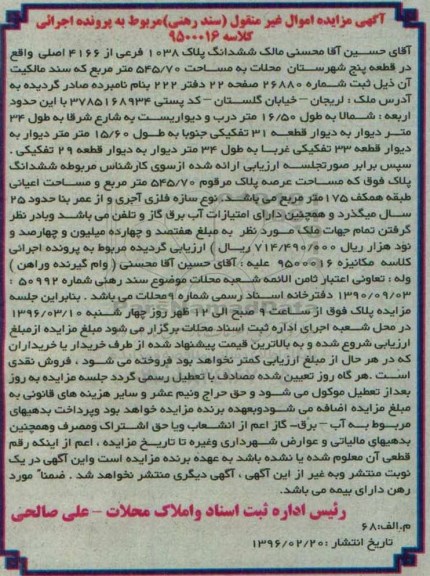 آگهی مزایده اموال غیر منقول (سند رهنی)مربوط به پرونده اجرائی
کلاسه ۹۵۰۰۰۱۶
آقای حسین آقا محسنی مالک ششدانگ پلاک ۱۰۳۸ فرعی از ۴۱۶۶ اصلی واقع
در قطعه پنج شهرستان محلات به مساحت ۵۴۵/۷۰ متر مربع که سند مالکیت
آن ذیل ثبت شماره ۲۶۸۸۰ صفحه ۲۲ دفتر ۲۲۲ بنام نامبرده صادر گردیده به
آدرس ملک : لریجان – خیابان گلستان – کد پستی ۳۷۸۵۱۶۸۹۳۴ با این حدود
اربعه : شمالا به طول ۱۶/۵۰ متر درب و دیواریست به شارع شرقا به طول ۳۴
متر دیوار به دیوار قطعه ۳۱ تفکیکی جنوبا به طول ۱۵/۶۰ متر دیوار به
دیوار قطعه ۳۳ تفکیکی غربا به طول ۳۴ متر دیوار به دیوار قطعه ۲۹ تفکیکی .
سپس برابر صورتجلسه ارزیابی ارائه شده ازسوی کارشناس مربوطه ششدانگ
پلاک فوق که مساحت عرصه پلاک مرقوم ۵۴۵/۷۰ متر مربع و مساحت اعیانی
طبقه همکف ۱۷۵متر مربع می باشد. نوع سازه فلزی آجری و از عمر بنا حدود ۲۵
سال میگذرد و همچنین دارای امتیازات آب برق گاز و تلفن می باشد وبادر نظر
گرفتن تمام جهات ملک مورد نظر به مبلغ هفتصد و چهارده میلیون و چهارصد و
نود هزار ریال ۷۱۴/۴۹۰/۰۰۰ ریال ) ارزیابی گردیده مربوط به پرونده اجرائی
کلاسه مکانیزه ۹۵۰۰۰۱۶ علیه : آقای حسین آقا محسنی ( وام گیرنده وراهن )
وله : تعاونی اعتبار ثامن الائمه شعبه محلات موضوع سند رهنی شماره ۵۰۹۹۲ :
۱۳۹۰/۰۹/۰۳ دفترخانه اسناد رسمی شماره ۹محلات می باشد . بنابراین جلسه
مزایده پلاک فوق از ساعت ۹ صبح الی ۱۲ ظهر روز چهار شنبه ۱۳۹۶/۰۳/۱۰
در محل شعبه اجرای اداره ثبت اسناد محلات برگزار می شود مبلغ مزایده ازمبلغ
ارزیابی شروع شده و به بالاترین قیمت پیشنهاد شده از طرف خریدار یا خریداران
که در هر حال از مبلغ ارزیابی کمتر نخواهد بود فروخته می شود ، فروش نقدی
است .هر گاه روز تعیین شده مصادف با تعطیل رسمی گردد جلسه مزایده به روز
بعداز تعطیل موکول می شود و حق حراج ونیم عشر و سایر هزینه های قانونی به
مبلغ مزایده اضافه می شودوبعهده برنده مزایده خواهد بود وپرداخت بدهیهای
مربوط به آب – برق- گاز اعم از انشعاب ویا حق اشتراک ومصرف وهمچنین
بدهیهای مالیاتی و عوارض شهرداری وغیره تا تاریخ مزایده ، اعم از اینکه رقم
قطعی آن معلوم شده یا نشده باشد به عهده برنده مزایده است واین آگهی در یک
نوبت منتشر وبه غیر از این آگهی ، آگهی دیگری منتشر نخواهد شد . ضمناً مورد
رهن دارای بیمه می باشد.
رئیس اداره ثبت اسناد واملاک محلات – علی صالحی
م.الف:۶۸
تاریخ انتشار :۱۳۹۶/۰۲/۲۰